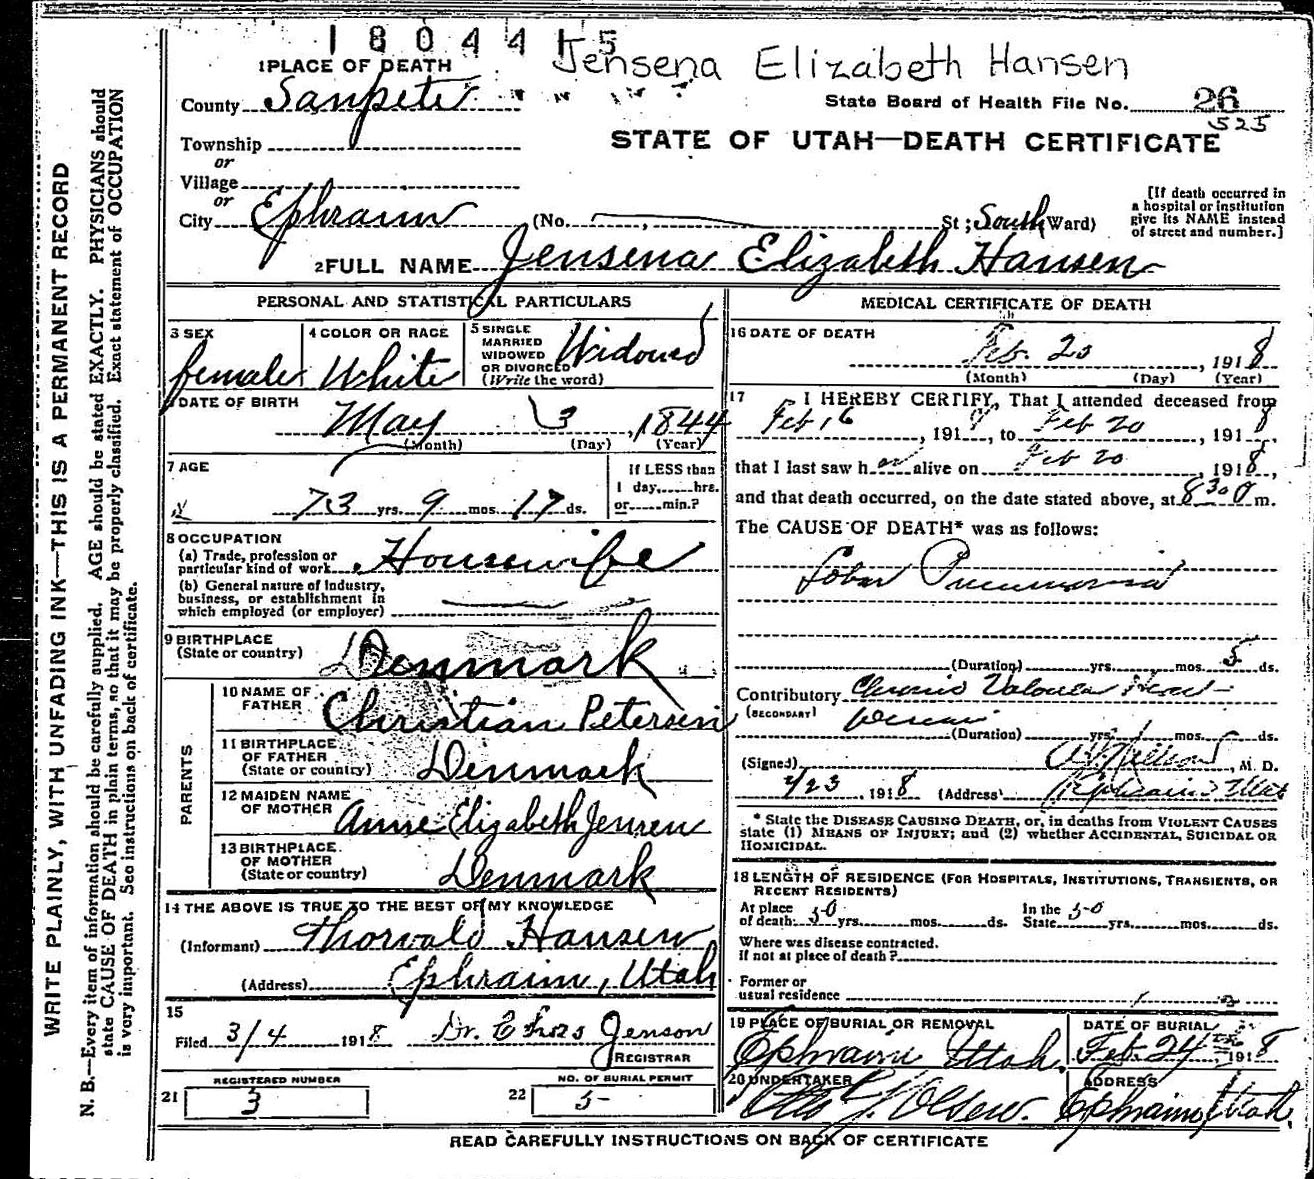 1804415
Jensena Elizabeth Hansen
1 PLACE OF DEATH
County Sanpete
State Board of Health File No. 26
525
Township
STATE OF UTAH—DEATH CERTIFICATE
or
Village
or
City Ephraim (No. St; South Ward)
[If death occurred in
a hospital or institution
give its NAME instead
of street and number.]
2 FULL NAME Jensena Elizabeth Hansen
PERSONAL AND STATISTICAL PARTICULARS
3 SEX
female
4 COLOR OR RACE
White
5 SINGLE
MARRIED
WIDOWED
OR DIVORCED
(Write the word)
Widowed
DATE OF BIRTH
May 3, 1844
(Month) (Day) (Year)
7 AGE
73 yrs. 9 mos. 17 ds.
If LESS than
1 day, hrs.
or min.?
8 OCCUPATION
(a) Trade, profession or
particular kind of work Housewife
(b) General nature of industry,
business, or establishment in
which employed (or employer)
9 BIRTHPLACE
(State or country) Denmark
PARENTS
10 NAME OF
FATHER Christian Petersen
11 BIRTHPLACE
OF FATHER
(State or country) Denmark
12 MAIDEN NAME
OF MOTHER Anne Elizabeth Jensen
13 BIRTHPLACE
OF MOTHER
(State or country) Denmark
14 THE ABOVE IS TRUE TO THE BEST OF MY KNOWLEDGE
(Informant) Thorvald Hansen
(Address) Ephraim, Utah
15
Filed 3/4 1918 Dr. Jenson
REGISTRAR
REGISTERED NUMBER
21 3
NO. OF BURIAL PERMIT
22 5
MEDICAL CERTIFICATE OF DEATH
16 DATE OF DEATH
Feb. 20, 1918
(Month) (Day) (Year)
17 I HEREBY CERTIFY, That I attended deceased from
Feb 16, 191, to Feb 20, 1918,
that I last saw her alive on Feb 20, 1918,
and that death occurred, on the date stated above, at 8 30 m.
The CAUSE OF DEATH* was as follows:
Lobar Pneumonia
(Duration) yrs. mos. 5 ds.
Contributory Chronic Valvular Heart
(SECONDARY)
(Duration) yrs. mos. ds.
(Signed) , M. D.
2/23, 1918 (Address) Ephraim Utah
* State the DISEASE CAUSING DEATH, or, in deaths from VIOLENT CAUSES
state (1) MEANS OF INJURY; and (2) whether ACCIDENTAL, SUICIDAL OR
HOMICIDAL.
18 LENGTH OF RESIDENCE (FOR HOSPITALS, INSTITUTIONS, TRANSIENTS, OR
RECENT RESIDENTS)
At place
of death 50 yrs. mos. ds.
In the
State 50 yrs. mos. ds.
Where was disease contracted.
if not at place of death?
Former or
usual residence
19 PLACE OF BURIAL OR REMOVAL
Ephraim Utah.
DATE OF BURIAL
Feb. 24 1918
20 UNDERTAKER
Olsen.
ADDRESS
Ephraim Utah.
READ CAREFULLY INSTRUCTIONS ON BACK OF CERTIFICATE
WRITE PLAINLY, WITH UNFADING INK—THIS IS A PERMANENT RECORD
N. B.—Every item of information should be carefully supplied. AGE should be stated EXACTLY. PHYSICIANS should
state CAUSE OF DEATH in plain terms, so that it may be properly classified. Exact statement of OCCUPATION
is very important. See instructions on back of certificate.